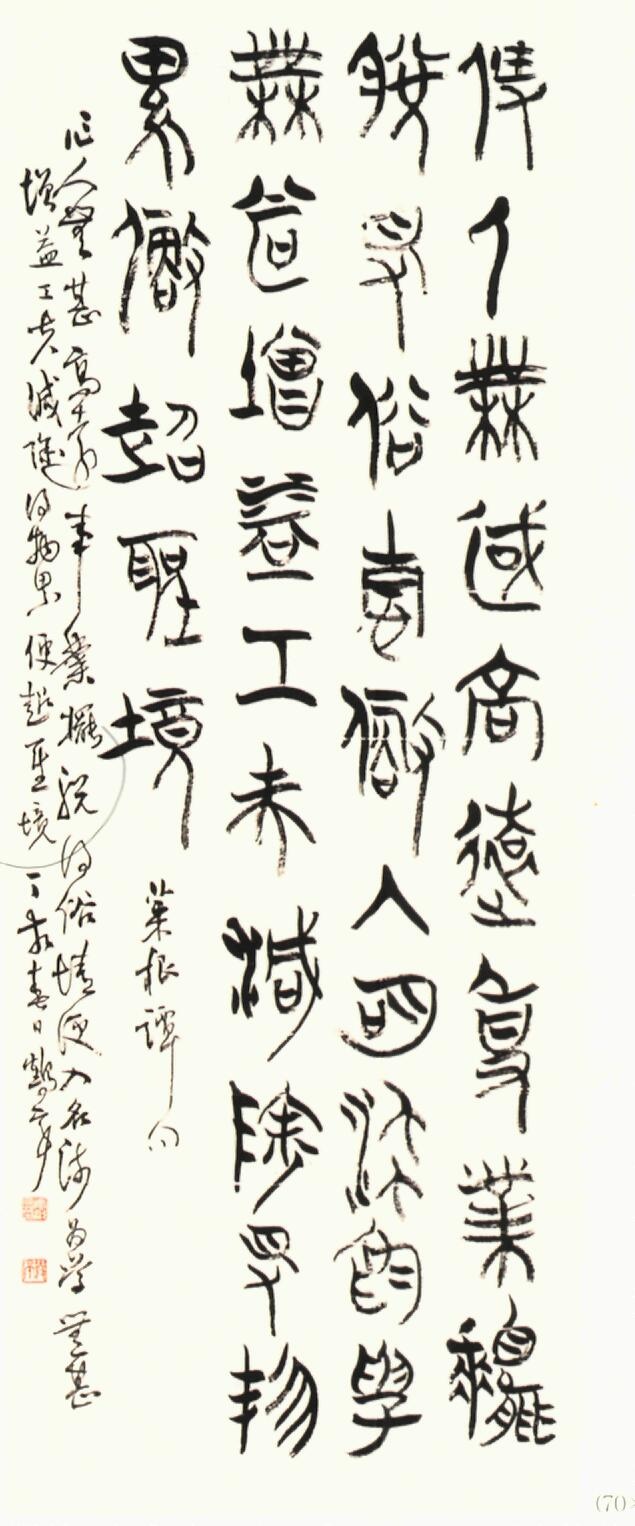 作人無甚高遠事業擺
脫得俗情便入名流為學
無甚增益工夫減除得物
累便超聖境
菜根譚句
作人無甚高遠事業擺脫得俗情便入名流為學無甚
增益工夫減除得物累便超聖境 丁亥春日鶴
(70)